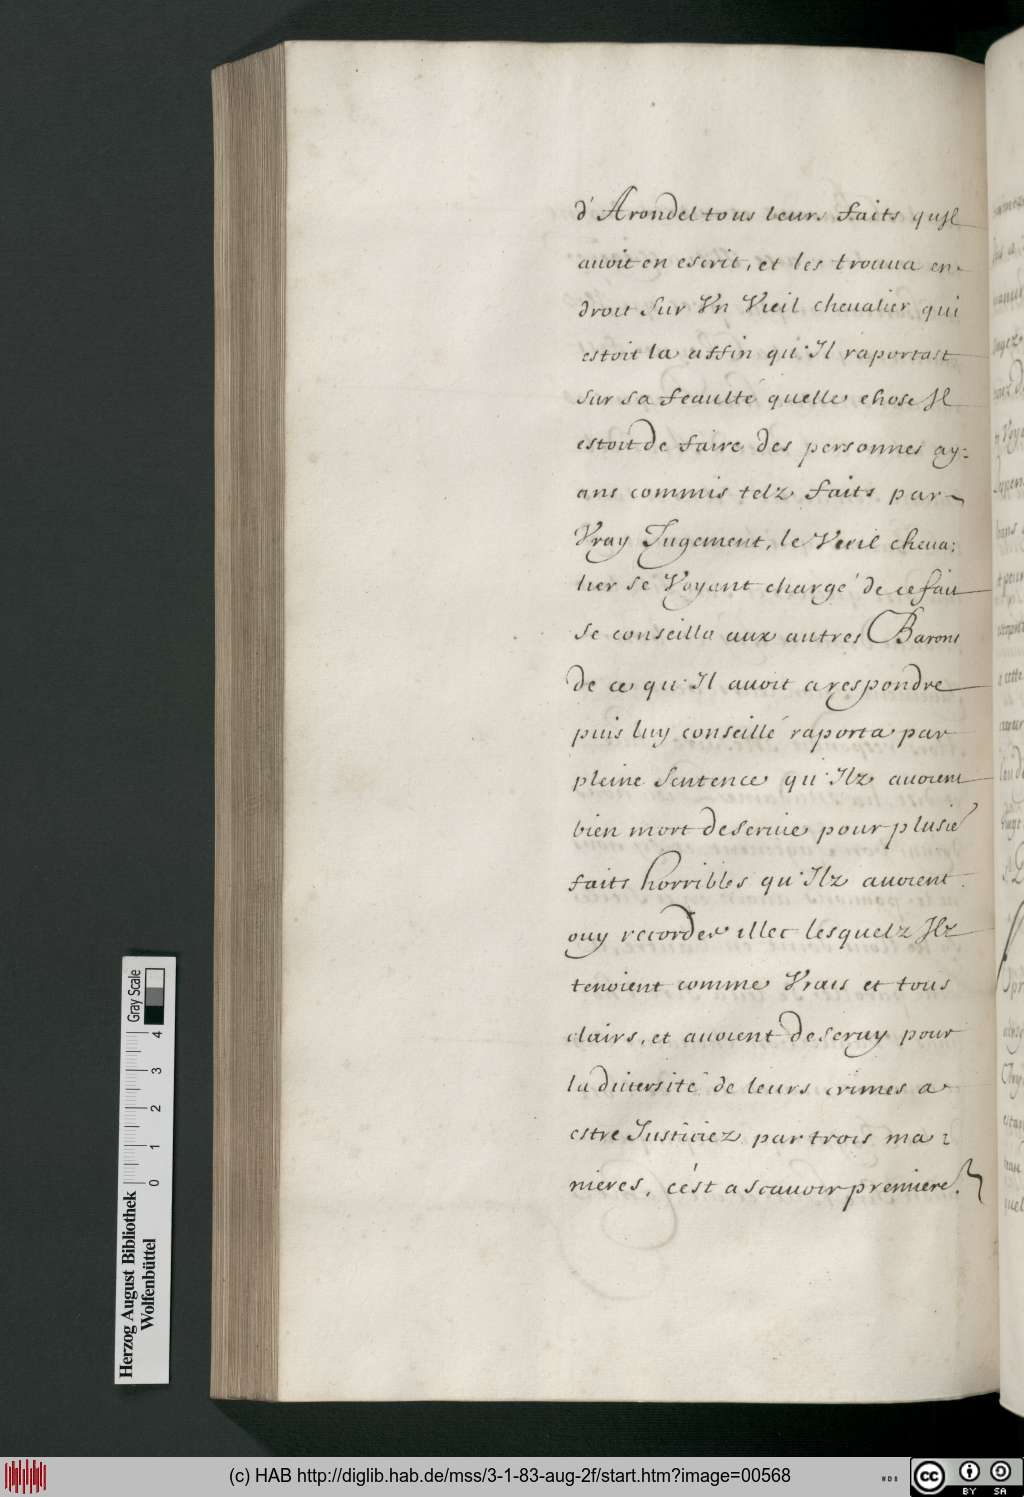 d'Arondel tous leurs faits qu Jl
auoit en escrit, et les trouua en
droit sur Vn Vieil cheualier qui
estoit la affin qu'Il raportast
sur sa feaulté quelle chose Jl
estoit de faire des personnes ay=
ans commis telz faits par
Vray Jugement, le Vieil cheua:
lier se Voyant chargé de ce fait
se conseilla aux autres Barons
de ce qu'Il auoit a respondre
puis luy conseillé raporta par
pleine Sentence qu'Ilz auoient
bien mort deseruie pour plusie
faits horribles qu'Ilz auoient
ouy recorder illec lesquelz Jlz
tenoient comme Vrais et tous
clairs, et auoient deseruy pour
la diuersité de leurs crimes a
estre Justiciez par trois ma:
nieres, cést a scauoir premiere.
Herzog August Bibliothek
Wolfenbüttel
0 1 2 3 4
Gray Scale
(c) HAB http://diglib.hab.de/mss/3-1-83-aug-2f/start.htm?image=00568
WDB
cc BY SA